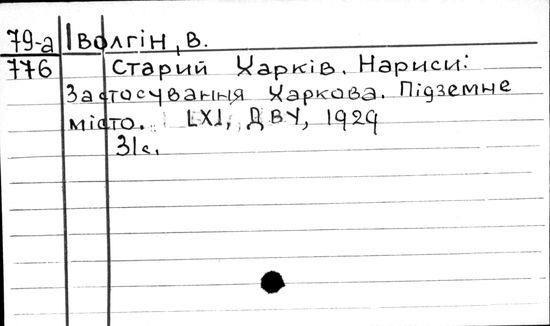 79-а Іволгін, В.
776 Старий Харків. Нариси:
Застосування Харкова. Підземне
місто. [Х], ДВУ, 1929
31с.